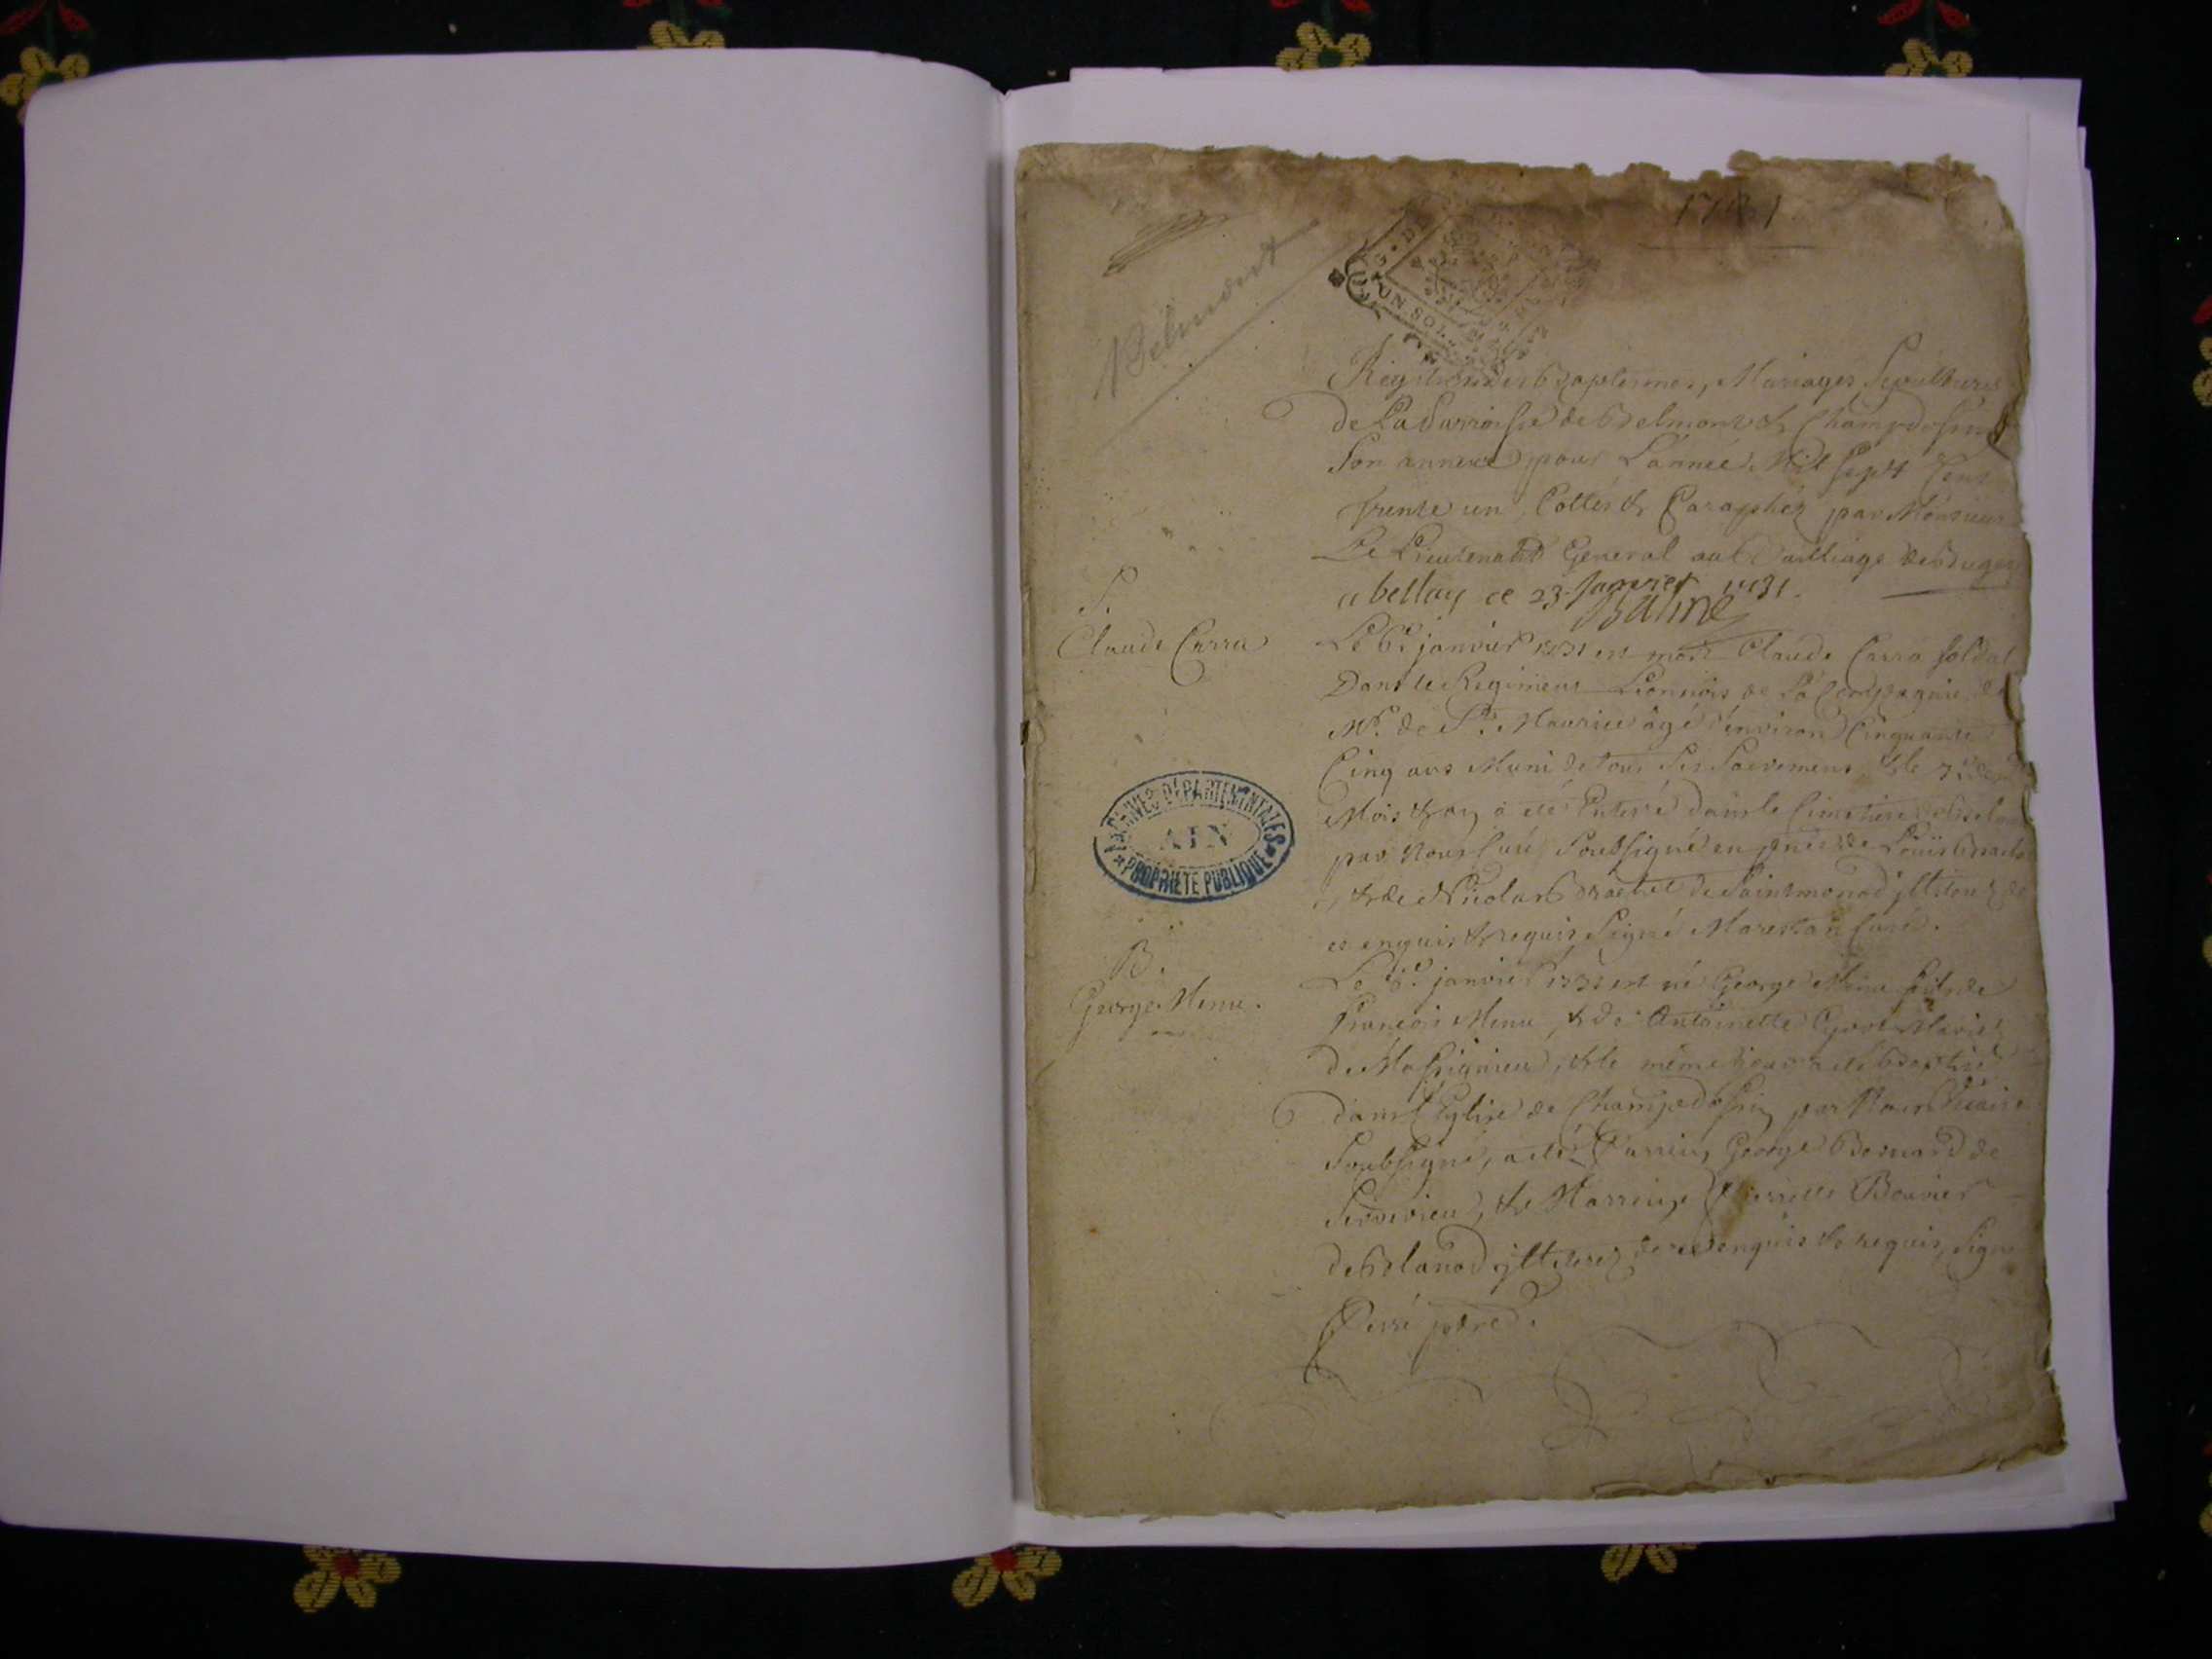 1731
Belmont
UN SOL
Registre des Baptesmes, Mariages Sepultures
de La Parroisse de Belmont & Champdossin
Son annexe pour L'année Mil sept Cent
trente un, Cottés & Paraphéz par Monsieur
Le Lieutenant General au Bailliage de Bugey
a bellay ce 23. Janvier 1731.
Balme
S.
Claude Carra
Le 6e. janvier 1731 est mort Claude Carra soldat
Dans le Regiment Lionnois de La Compagnie de
Mr. de St. Maurice âgé d'environ Cinquante
Cinq ans Muni de tous Ses Sacremens, & le 7e. des
Mois & an a été Enterré dans le Cimetiere
par Nous Curé Soussigné en pnce de Louis
& de Nicolas de
ce enquis & requis Signé Marestan Curé.
ARCHIVES DEPARTEMENTALES
AIN
PROPRIETE PUBLIQUE
B.
George Menu.
Le 6e. janvier 1731 est né George Menu fils de
François Menu, & de Antoinette Mariés
de Massignieu, & le même jour a été Baptisé
dans l'Eglise de Champdossin par Nous Vicaire
Soubsigné, a été Parrein George Bernard de
& Marreine Pierrette Bouvier
de illiterez de ce enquis & requis, Signé